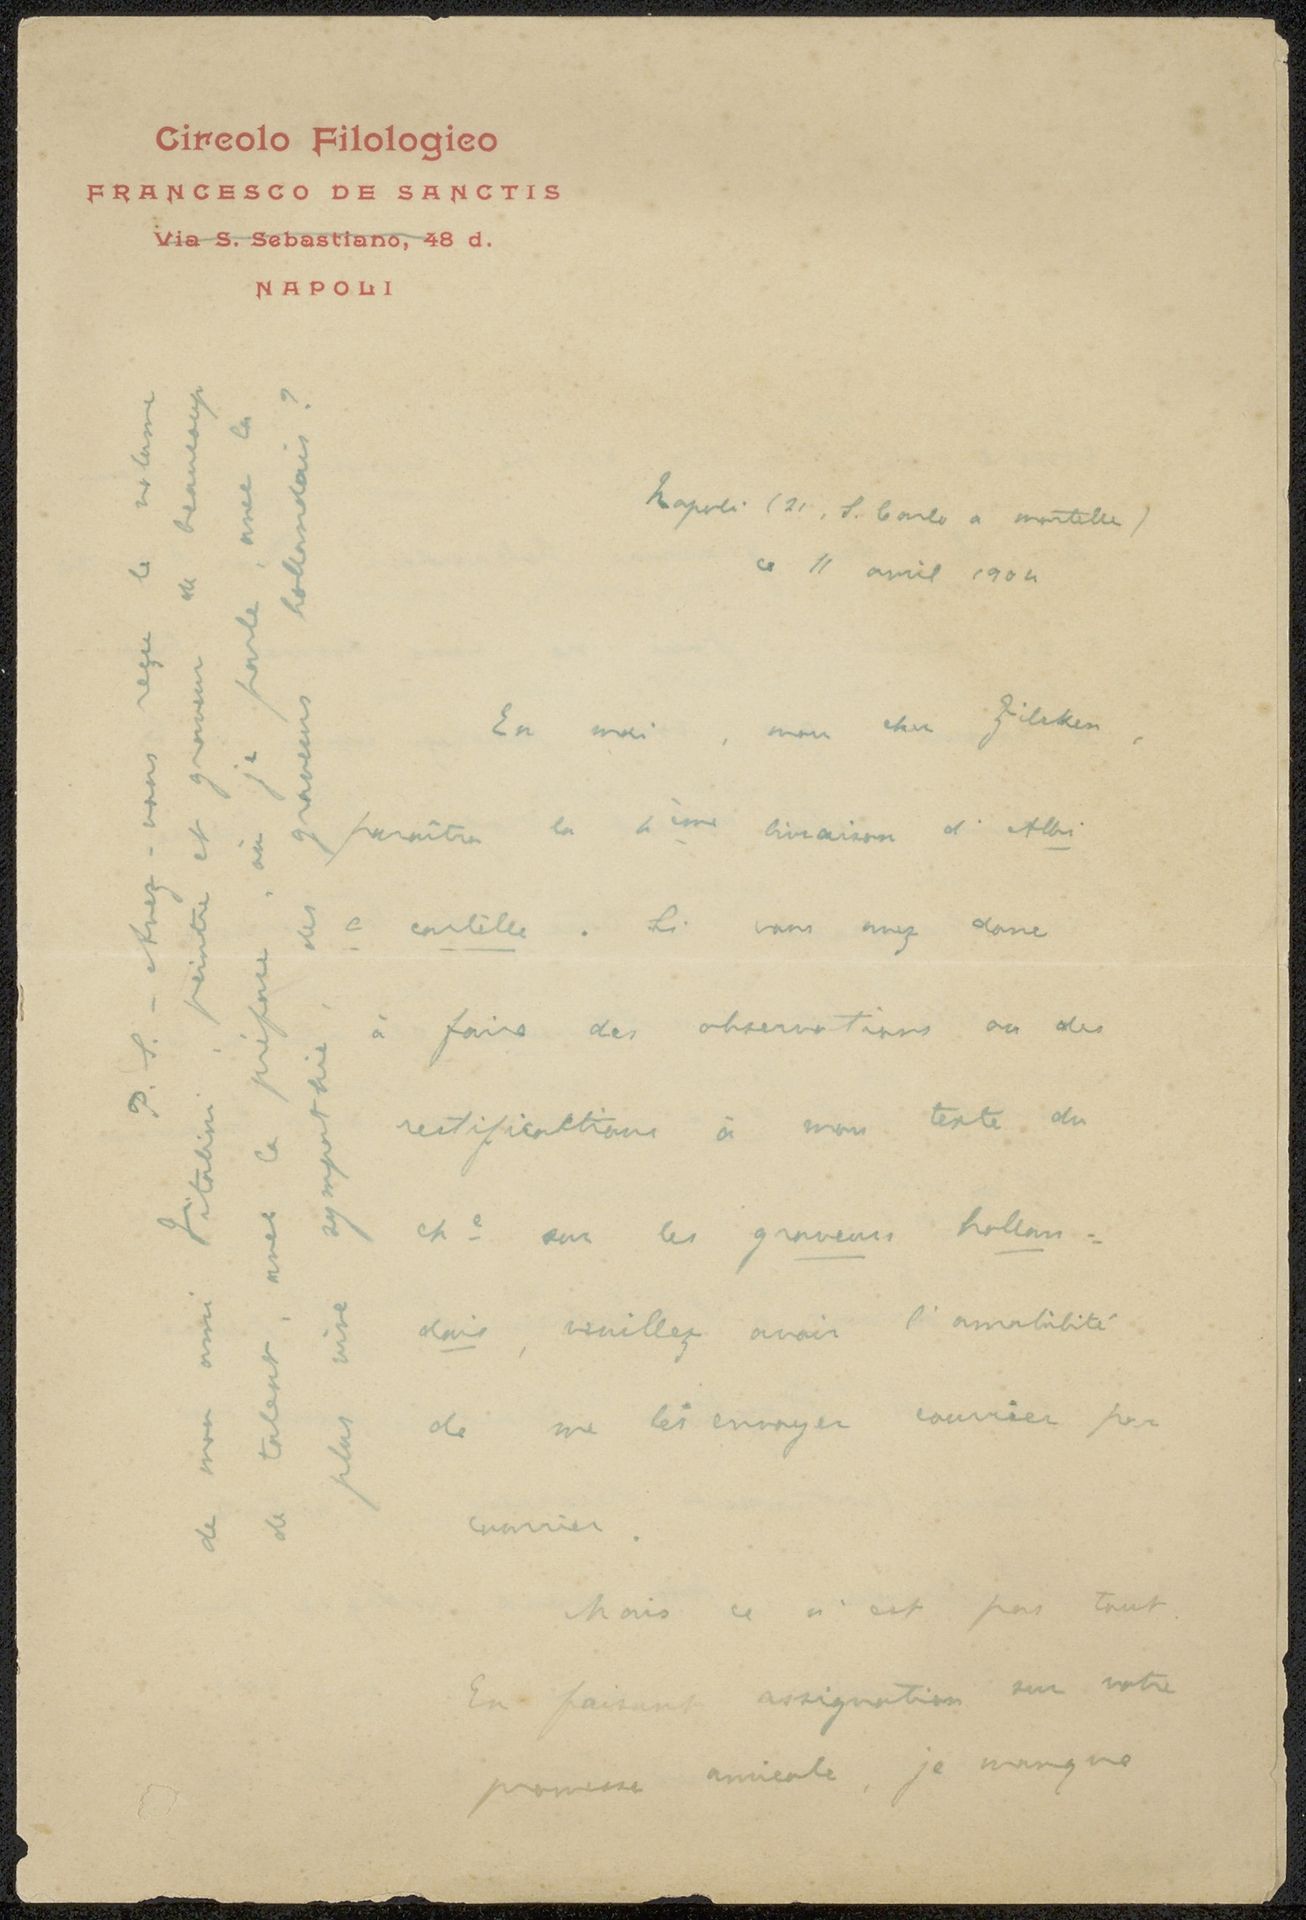 Circolo Filologico
FRANCESCO DE SANCTIS
Via S. Sebastiano, 48 d.
NAPOLI
Napoli (21, S. Carlo a mortelle)
ce 11 avril 1904
En mai, mon cher Zilcken,
paraîtra la 4ème livraison d'Albi
e cartelle. Si vous avez donc
à faire des observations ou des
rectifications à mon texte du
che sur les graveurs hollan-
dais, veuillez avoir l'amabilité
de me les envoyer courrier par
courrier.
Mais ce n'est pas tout
En faisant assignation sur votre
promesse amicale, je manque
P. S. - Avez-vous reçu le volume
de mon ami , peintre et graveur de beaucoup
de talent, avec la préface, où je parle, avec la
plus vive sympathie, des graveurs hollandais?